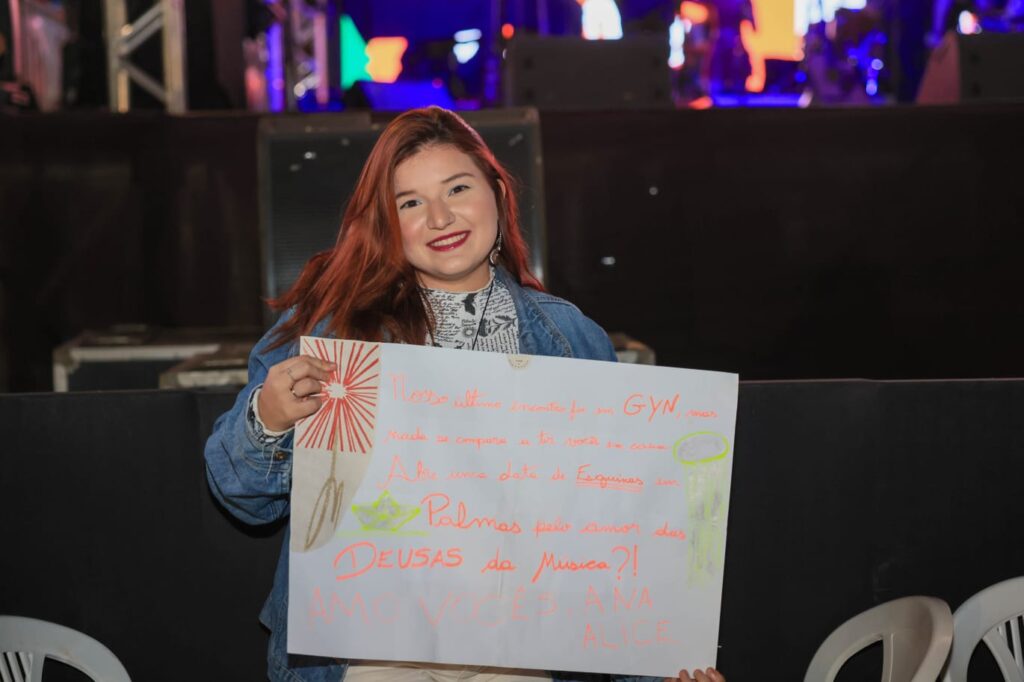 Nosso último encontro foi em GYN, mas
nada se compara a ter você em casa
Abre uma data de Esquinas em
Palmas pelo amor das
DEUSAS da Música?!
AMO VOCÊS, ANA
ALICE